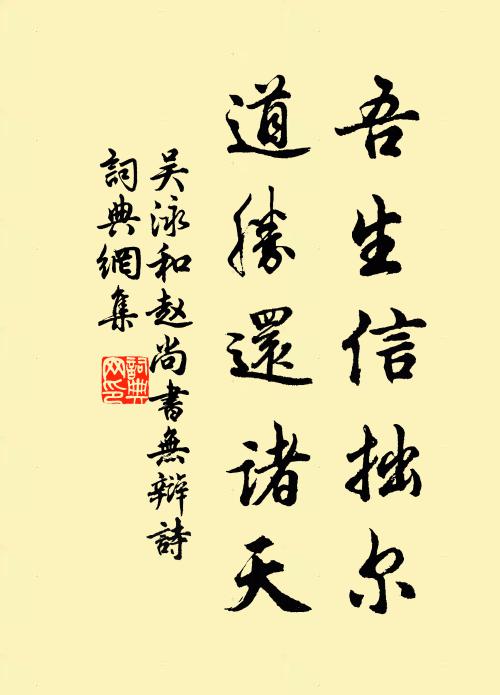 吾生信拙尔
道勝還诸天
吴泳和赵尚書無辯詩
詞典網集
詞典网印